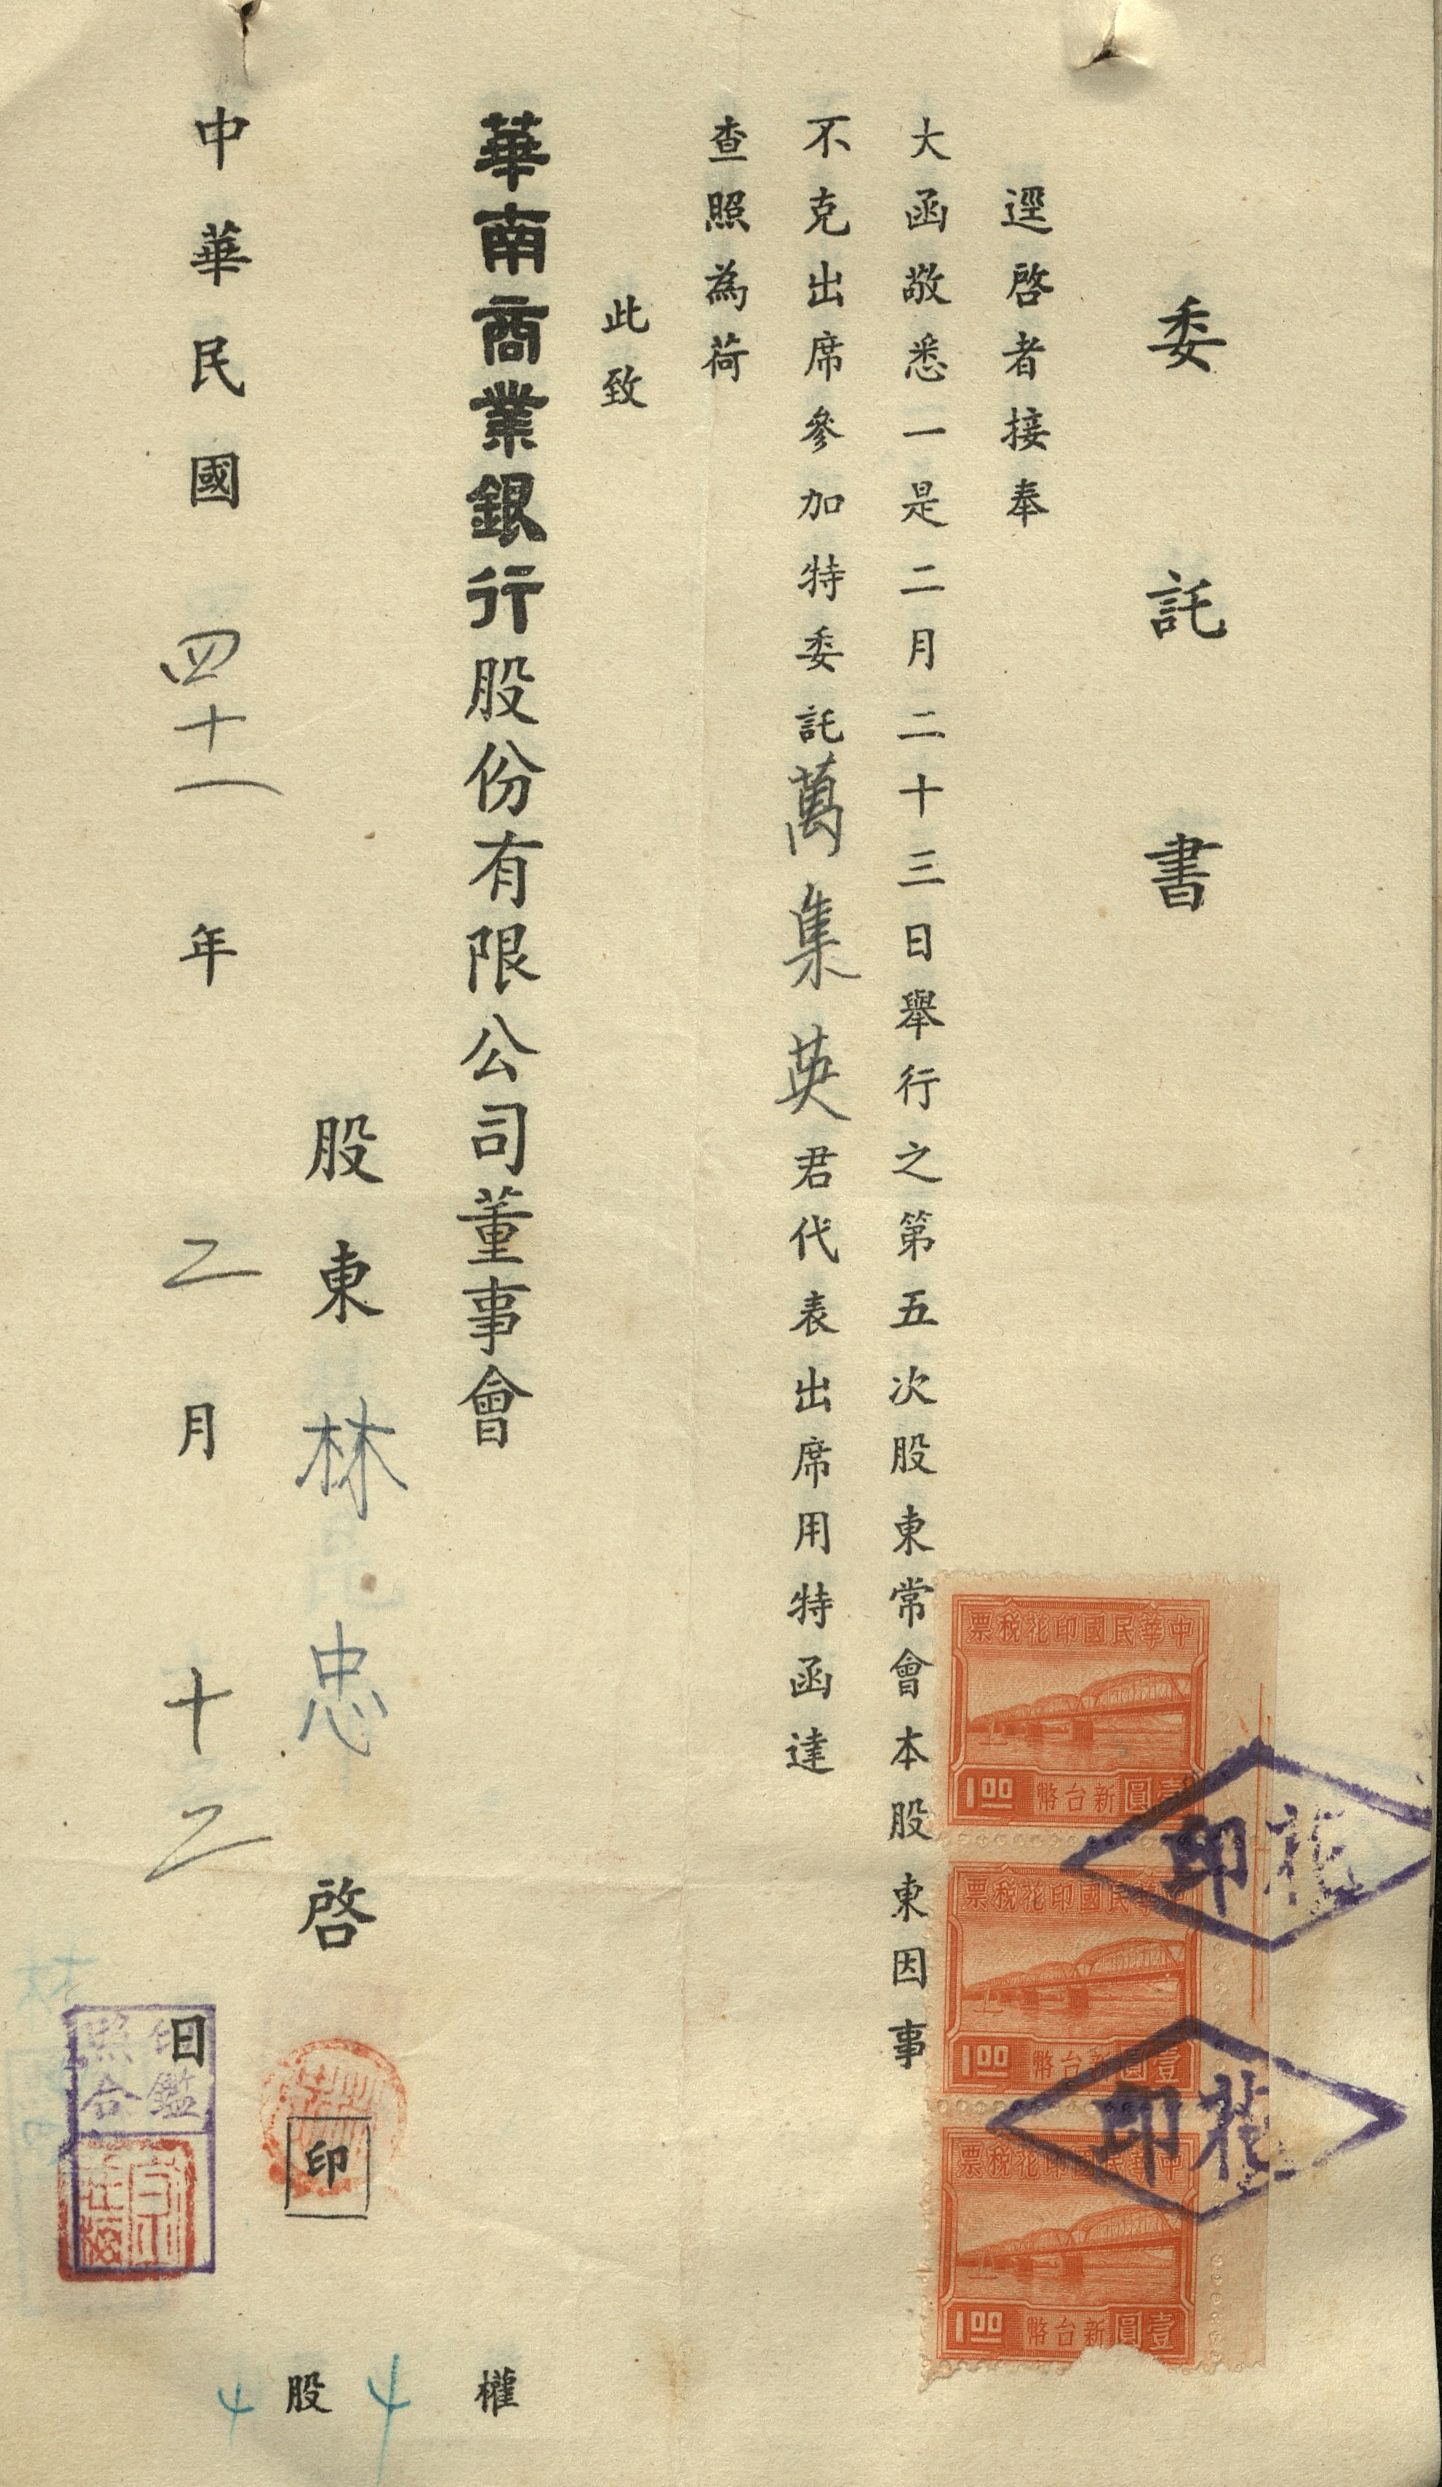 委託書
逕啓者接奉
大函敬悉一是二月二十三日舉行之第五次股東常會本股東因事
不克出席參加特委託萬集英君代表出席用特函達
查照為荷
此致
華南商業銀行股份有限公司董事會
股東林忠啓
印
中華民國四十一年二月十二日
權
股
中華民國印花稅票
1.00
壹圓新台幣
中華民國印花稅票
1.00
壹圓新台幣
中華民國印花稅票
1.00
壹圓新台幣
印花
印花
印鑑
照合